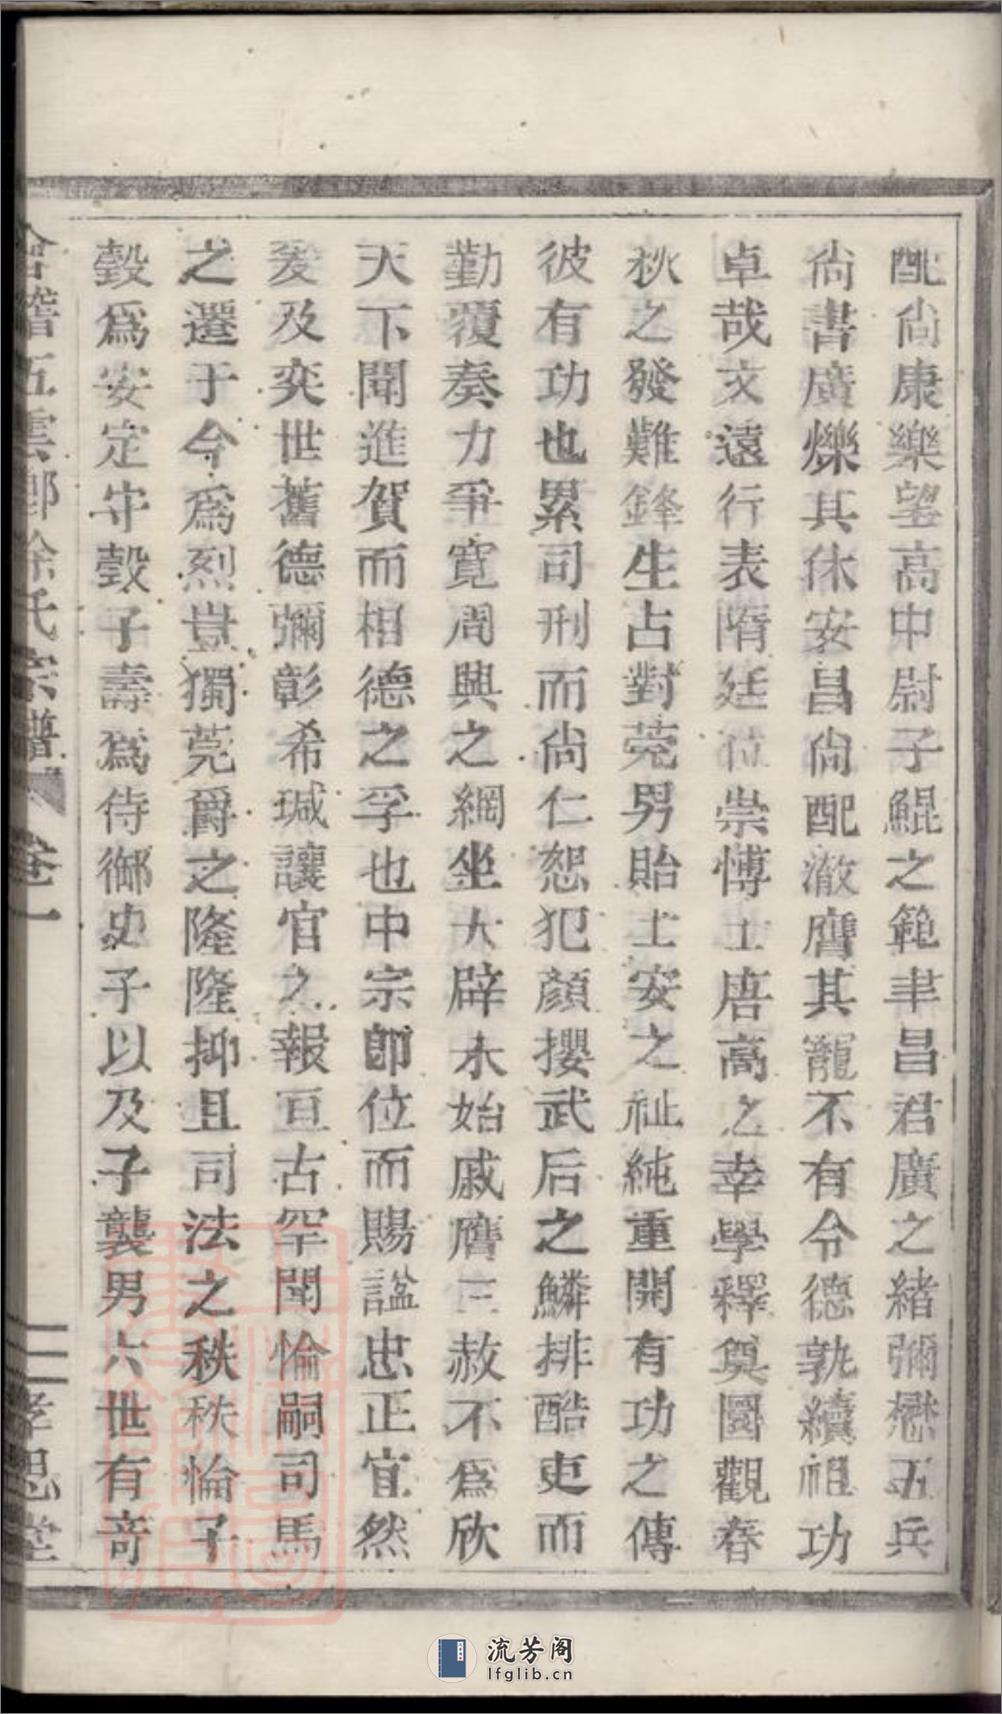 配尚康樂望高中尉子鯤之範聿昌君廣之緒彌懋五兵
尚書廣爍其休安昌尚配澈膺其寵不有令德孰續祖功
卓哉文遠行表隋廷位崇博士唐高之幸學釋奠圜觀春
秋之發難鋒生占對莞男貽士安之祉純重開有功之傳
彼有功也累司刑而尚仁恕犯顏攖武后之鱗排酷吏而
勤覆奏力爭寬周興之網坐大辟未始戚膺三赦不為欣
天下聞進賀而相德之孚也中宗卽位而賜諡忠正宜然
爰及奕世舊德彌彰希瑊讓官之報亘古罕聞惀嗣司馬
之遷于今爲烈豈獨莞爵之隆隆抑且司法之秩秩惀子
瑴爲安定守瑴子壽爲侍御史子以及子襲男六世有奇
會稽五雲鄉徐氏宗譜 卷一 二 孝思堂
流芳阁
lfglib.cn